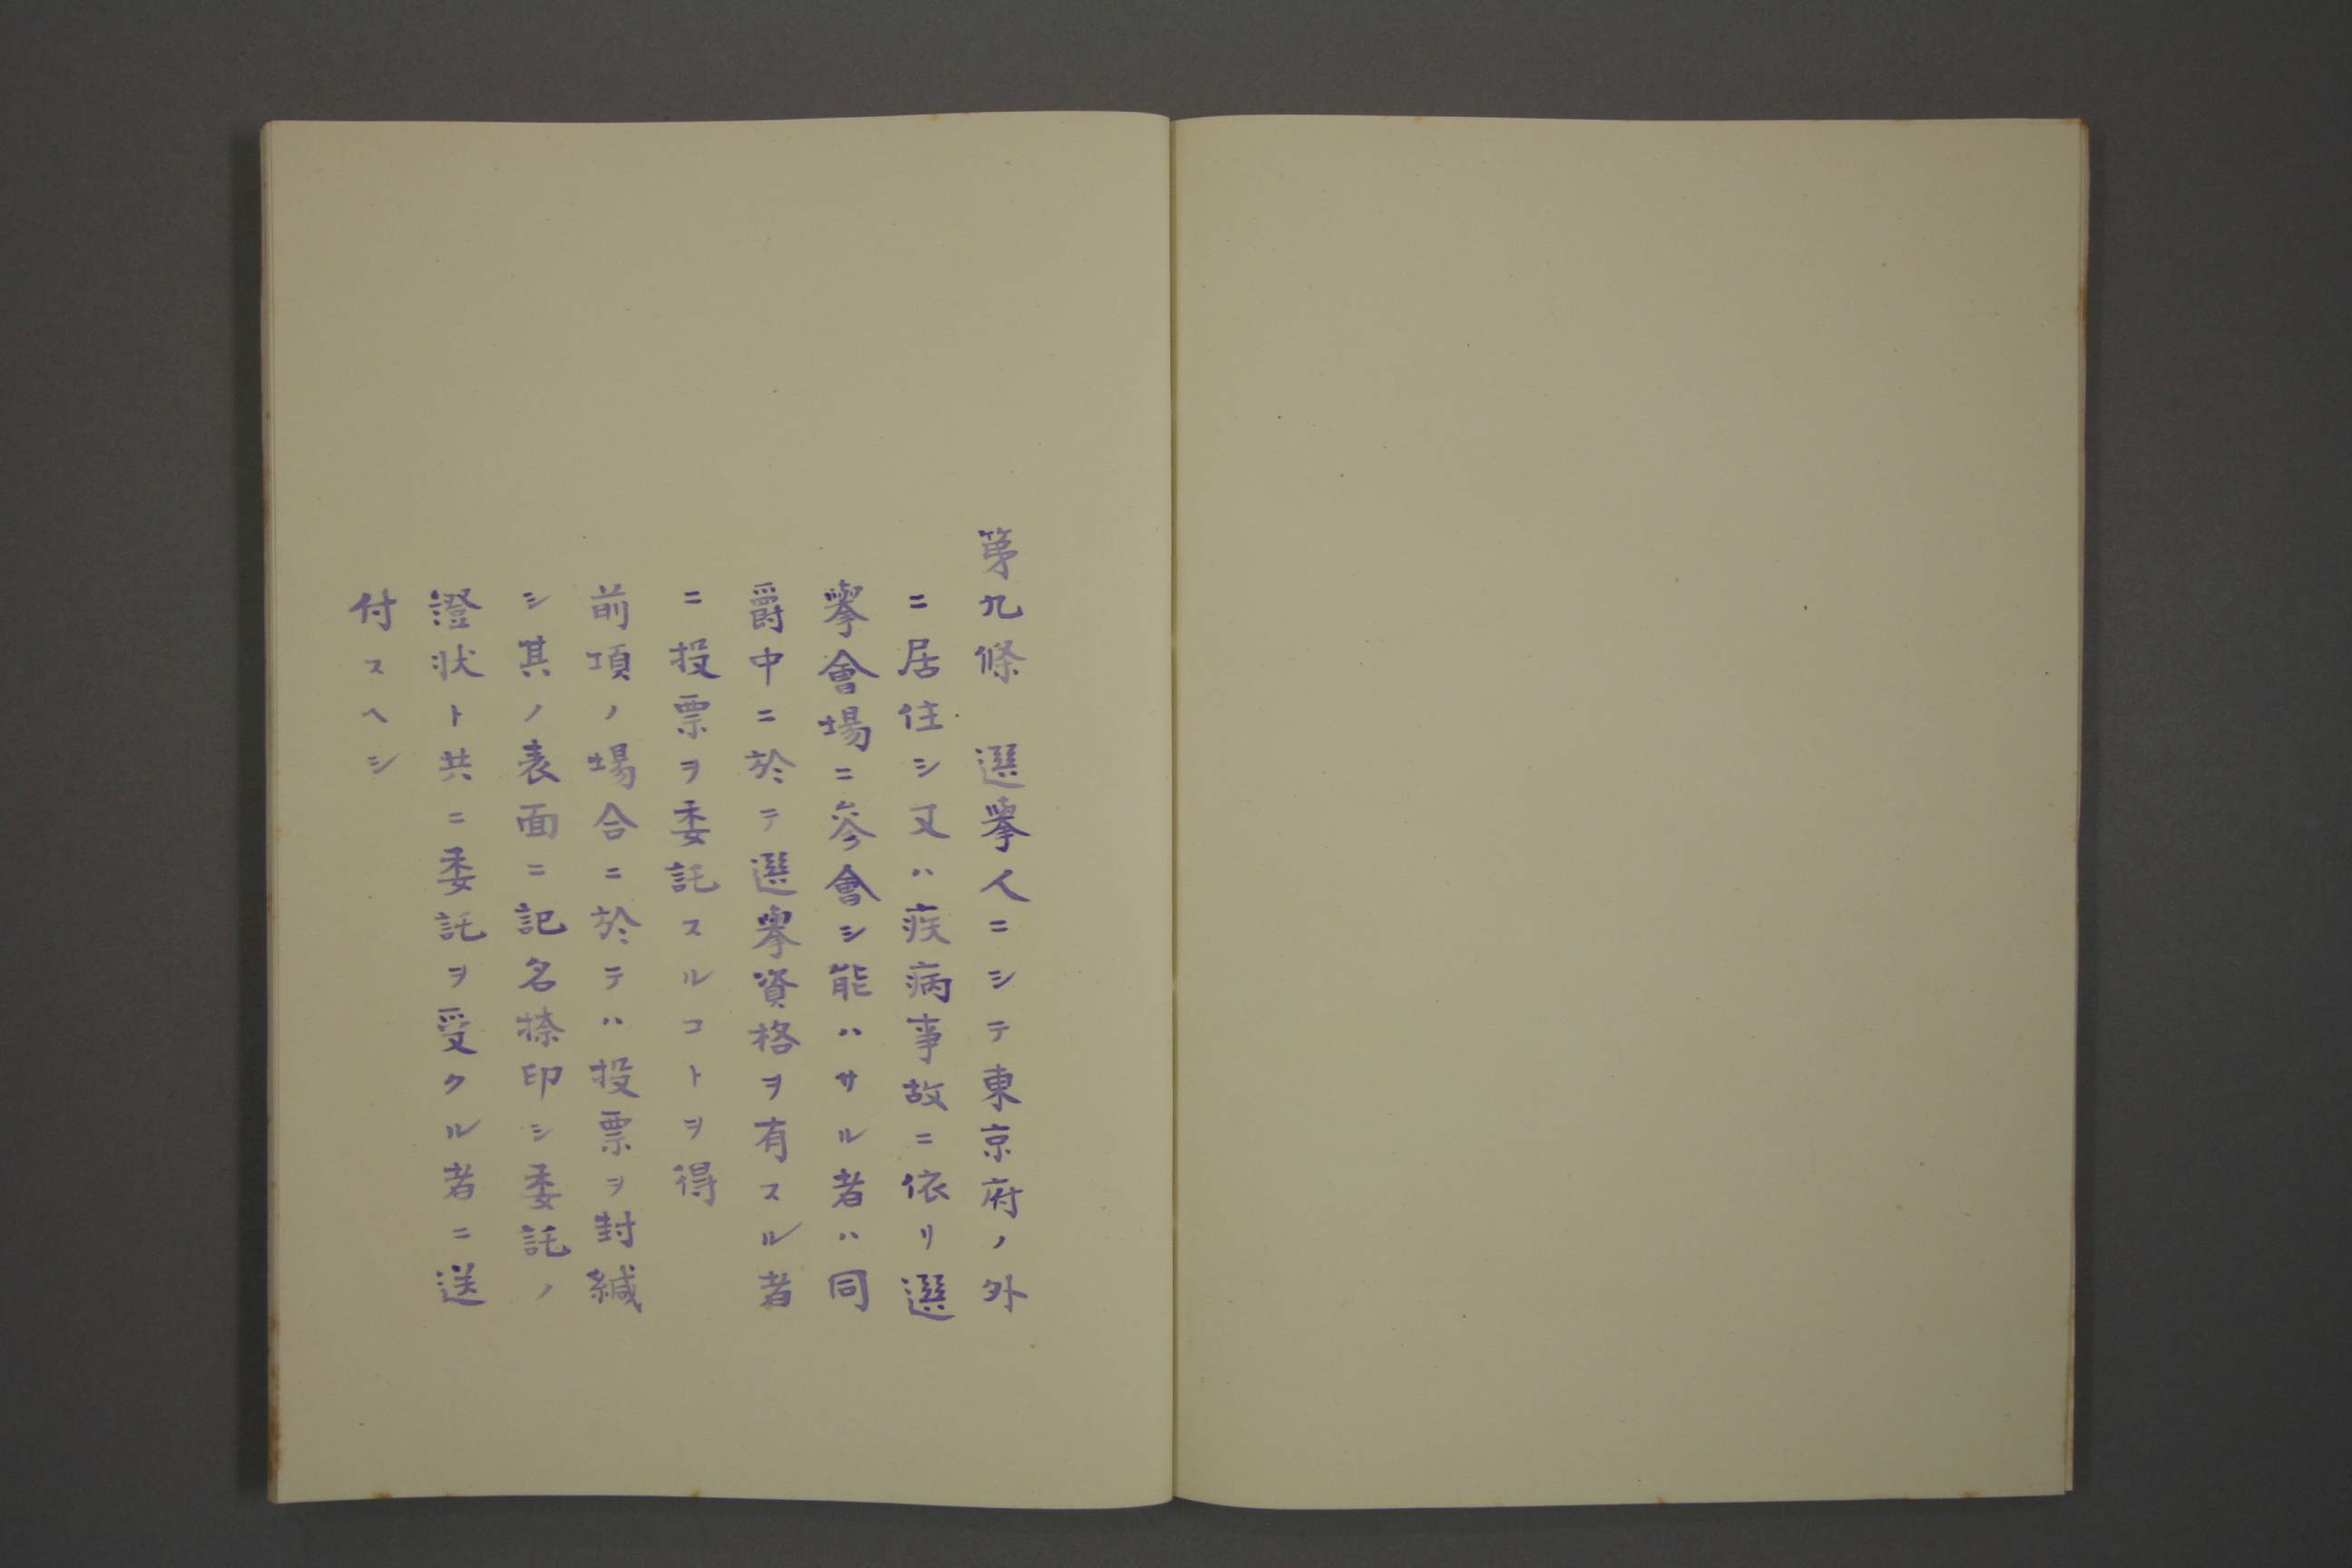 第九條　選擧人ニシテ東京府ノ外
ニ居住シ又ハ疾病事故ニ依リ選
擧會場ニ參會シ能ハサル者ハ同
爵中ニ於テ選擧資格ヲ有スル者
ニ投票ヲ委託スルコトヲ得
前項ノ場合ニ於テハ投票ヲ封緘
シ其ノ表面ニ記名捺印シ委託ノ
證狀ト共ニ委託ヲ受クル者ニ送
付スヘシ